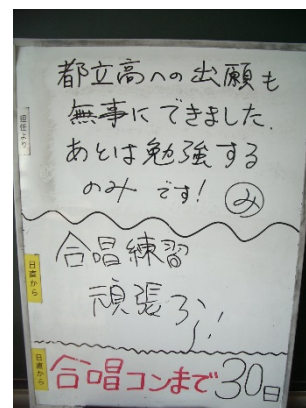 担任より
都立高への出願も
無事にできました.
あとは勉強する
のみです! み
日直から
合唱練習
頑張ろう!!
日直から
合唱コンまで30日